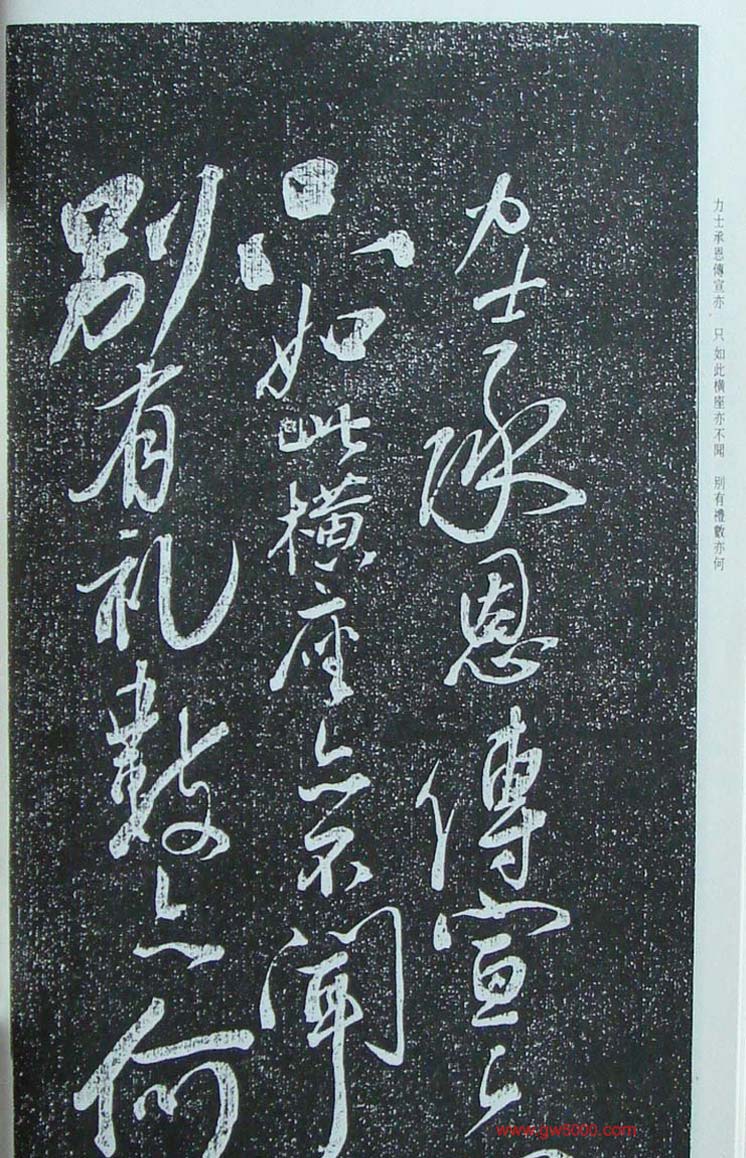 力士承恩傳宣亦
只如此横座亦不聞
别有礼數亦何
力士承恩傳宣亦　只如此橫座亦不聞　別有禮數亦何
www.gw8000.com